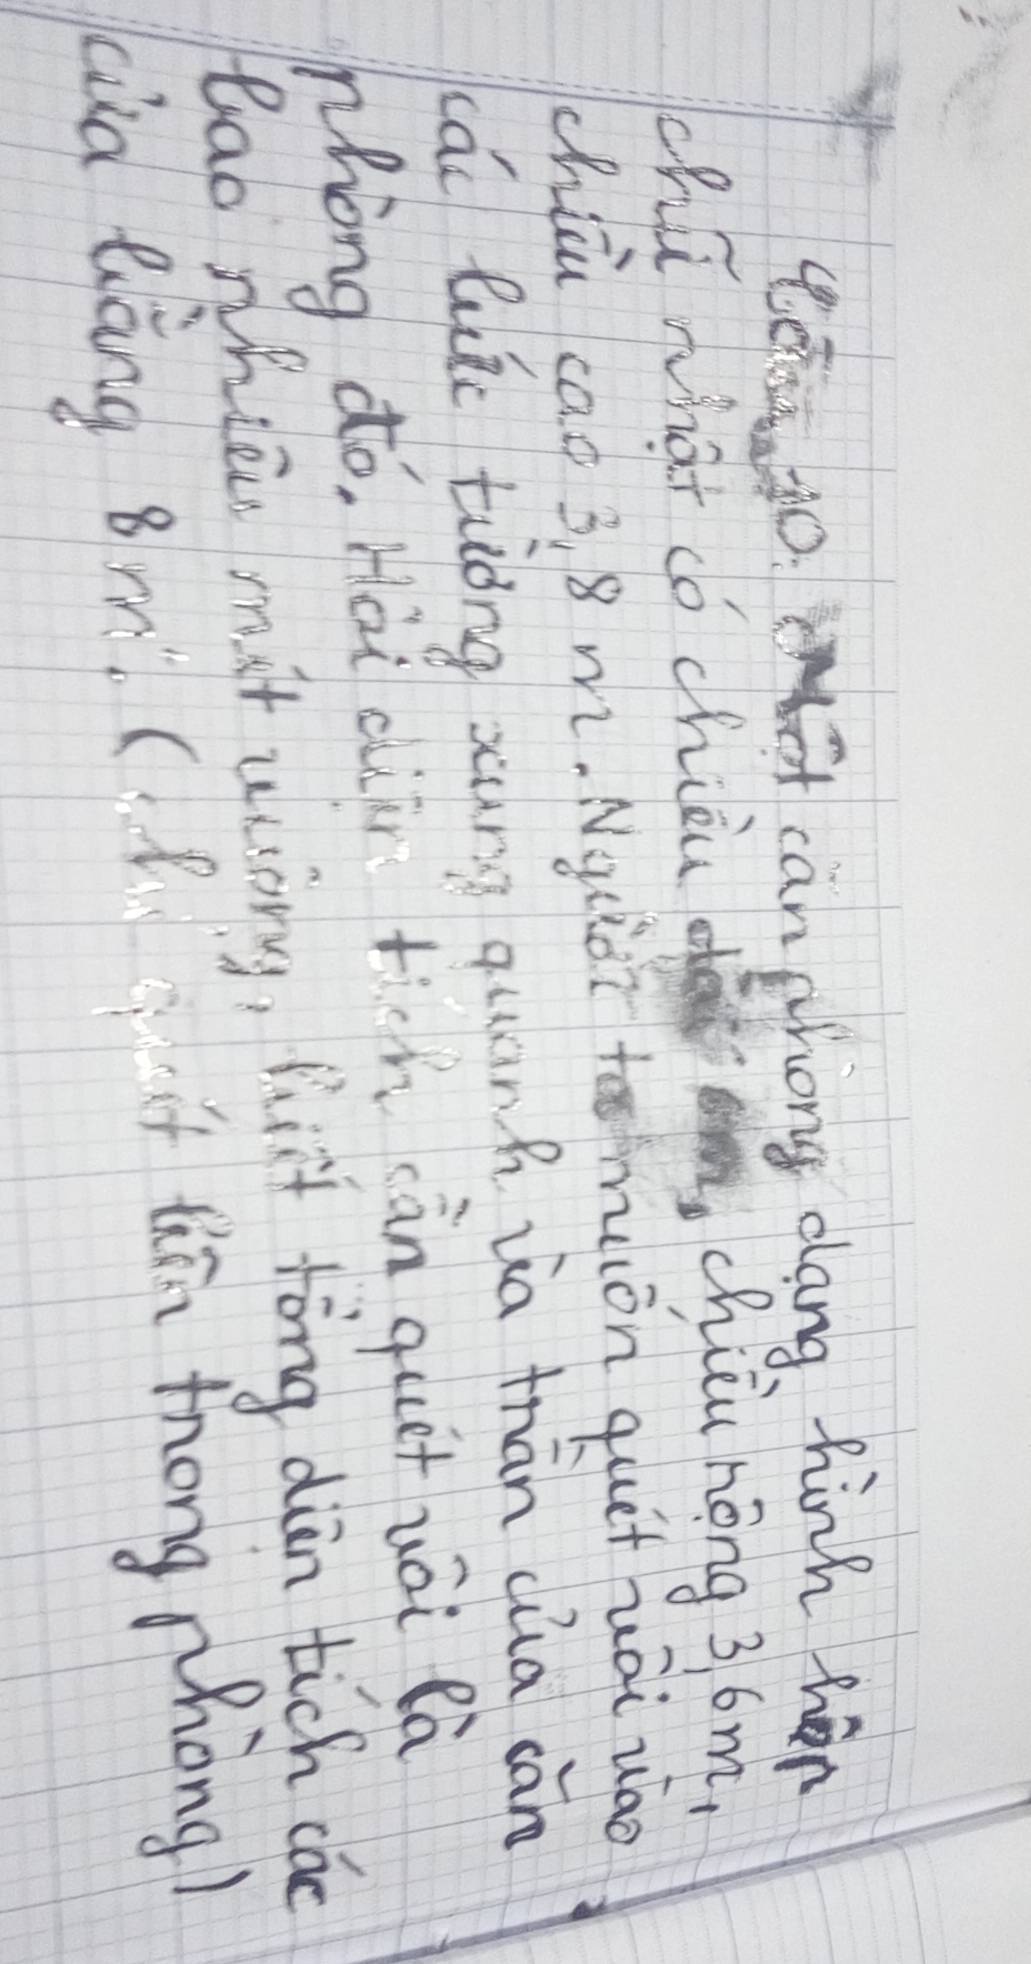 Bài 10. Một căn phòng dạng hình hộp
chữ nhật có chiều dài m, chiều rộng 3,6m,
chiều cao 3,8 m. Người ta muốn quét vôi vào
các bức tường xung quanh và trần của căn
phòng đó. Hỏi diện tích cần quét vôi là
bao nhiêu mét vuông, biết tổng diện tích các
cửa bằng 8 m². (chỉ quét bên trong phòng)